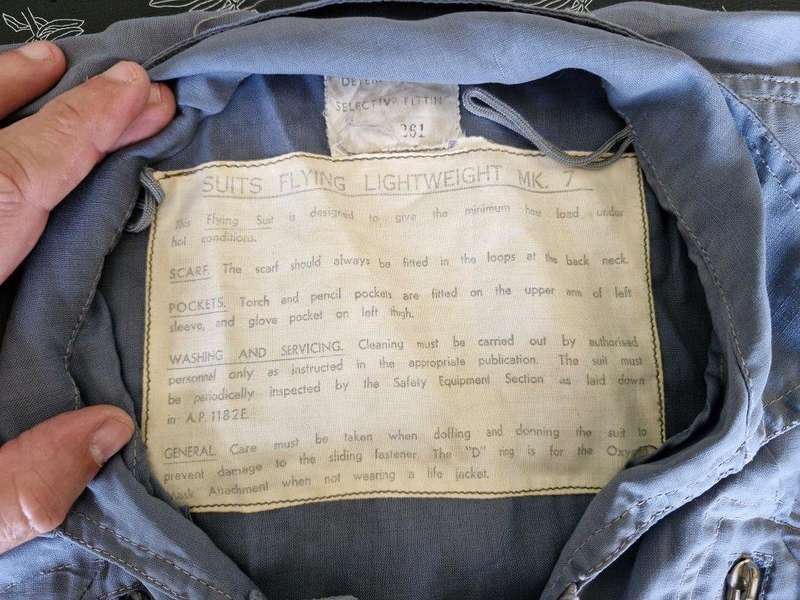 SELECTIVE FITTIN
261
SUITS FLYING LIGHTWEIGHT MK. 7
This Flying Suit is designed to give the minimum heat load under
hot conditions.
SCARF. The scarf should always be fitted in the loops at the back neck.
POCKETS. Torch and pencil pockets are fitted on the upper arm of left
sleeve, and glove pocket on left thigh.
WASHING AND SERVICING. Cleaning must be carried out by authorised
personnel only as instructed in the appropriate publication. The suit must
be periodically inspected by the Safety Equipment Section as laid down
in A.P. 1182E.
GENERAL. Care must be taken when doffing and donning the suit to
prevent damage to the sliding fastener. The "D" ring is for the Oxygen
Mask Attachment when not wearing a life jacket.